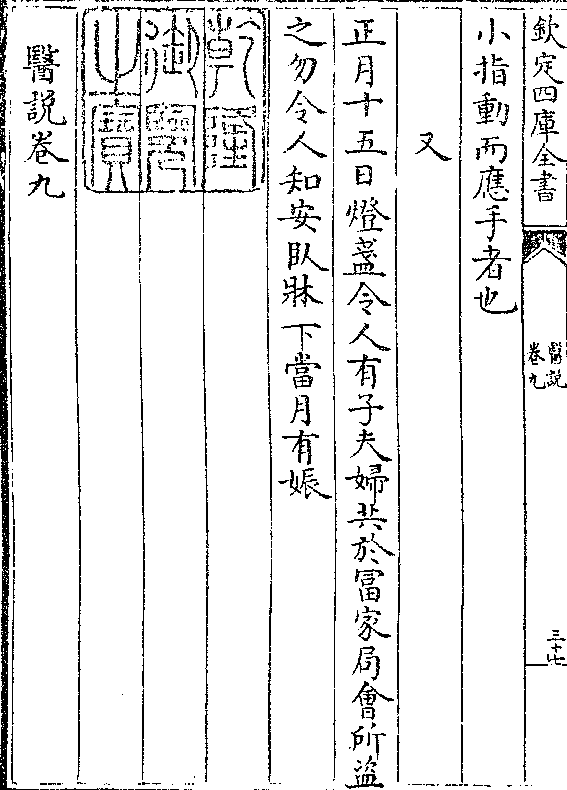 欽定四庫全書
醫説
卷九
三十七
小指動而應手者也
又
正月十五日燈盞令人有子夫婦共於富家局會所盜
之勿令人知安臥牀下當月有娠
乾隆
御覽
之寶
醫説卷九